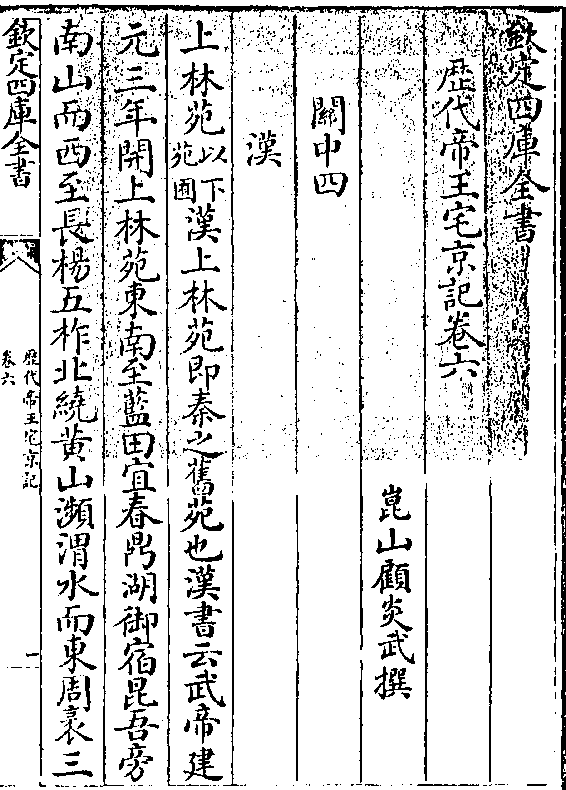 欽定四庫全書
歷代帝王宅京記卷六
崑山顧炎武撰
關中四
漢
上林苑以下苑囿漢上林苑即秦之舊苑也漢書云武帝建
元三年開上林苑東南至藍田宜春鼎湖御宿昆吾旁
南山而西至長楊五柞北繞黃山瀕渭水而東周袤三
欽定四庫全書
歷代帝王宅京記
卷六
一